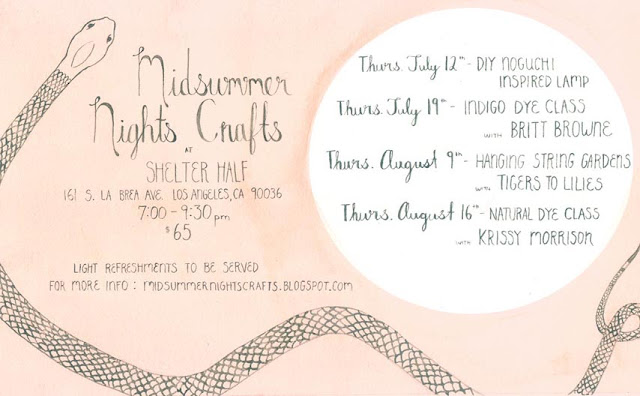 Midsummer
Nights Crafts
AT
SHELTER HALF
161 S. LA BREA AVE. LOS ANGELES, CA 90036
7:00 - 9:30 pm
$65
LIGHT REFRESHMENTS TO BE SERVED
FOR MORE INFO : MIDSUMMERNIGHTSCRAFTS.BLOGSPOT.COM
Thurs. July 12th - DIY NOGUCHI
INSPIRED LAMP
Thurs. July 19th - INDIGO DYE CLASS
WITH BRITT BROWNE
Thurs. August 9th - HANGING STRING GARDENS
WITH TIGERS TO LILIES
Thurs. August 16th - NATURAL DYE CLASS
WITH KRISSY MORRISON